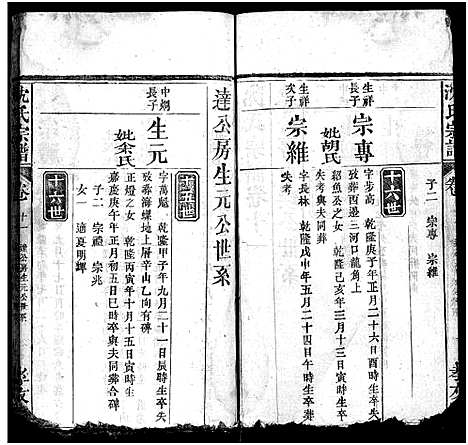 沈氏宗譜
卷
子二 宗專 宗維
十六世
生祥長子
宗專
字步高 乾隆庚子年二月二十六日酉時生卒失
考葬酉邊三河口龍角上
妣胡氏
紹魚公之女 乾隆己亥年三月十三日寅時生卒
失考與夫同葬
生祥次子
宗維
字長林 乾隆戊申年五月二十四日午時生卒葬
失考
達公房生元公世系
十五世
中炯長子
生元
字萬魁 乾隆甲子年九月二十一日辰時生卒失
考葬海螺地上屠辛山乙向有碑
妣余氏
正燈之女 乾隆丙寅年十月十五日寅時生
嘉慶庚午年正月初五日巳時卒與夫同葬合碑
子二 宗禮 宗兆
女一 適夏明譁
十六世
沈氏宗譜
卷 十一 達公房生元公世系
孝友